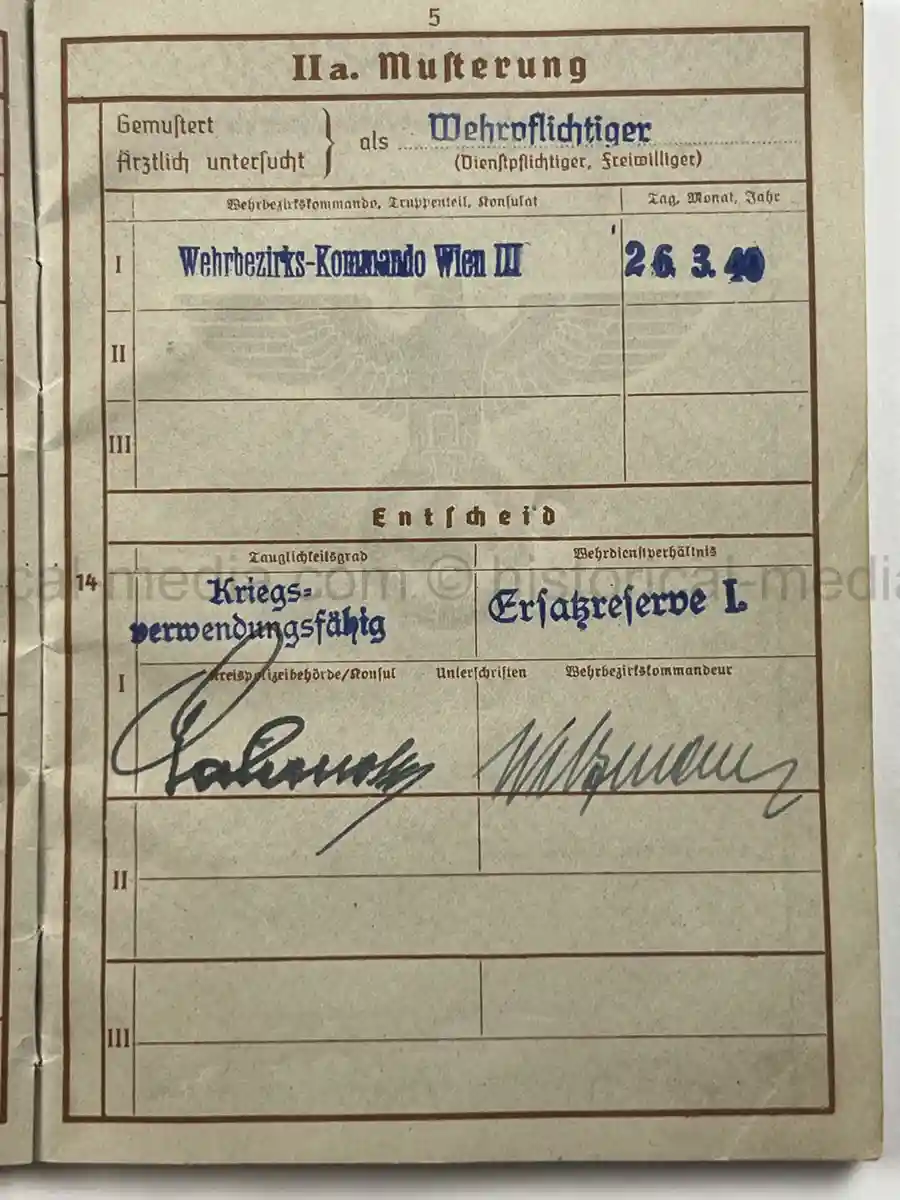 5
II a. Musterung
Gemustert
Ärztlich untersucht } als Wehrpflichtiger
(Dienstpflichtiger, Freiwilliger)
Wehrbezirkskommando, Truppenteil, Konsulat Tag, Monat, Jahr
I Wehrbezirks-Kommando Wien III 26. 3. 40
II
III
Entscheid
Tauglichkeitsgrad Wehrdienstverhältnis
14
Kriegs-
verwendungsfähig Ersatzreserve I.
I Kreispolizeibehörde/Konsul Unterschriften Wehrbezirkskommandeur
II
III
cal-media.com © historical-media